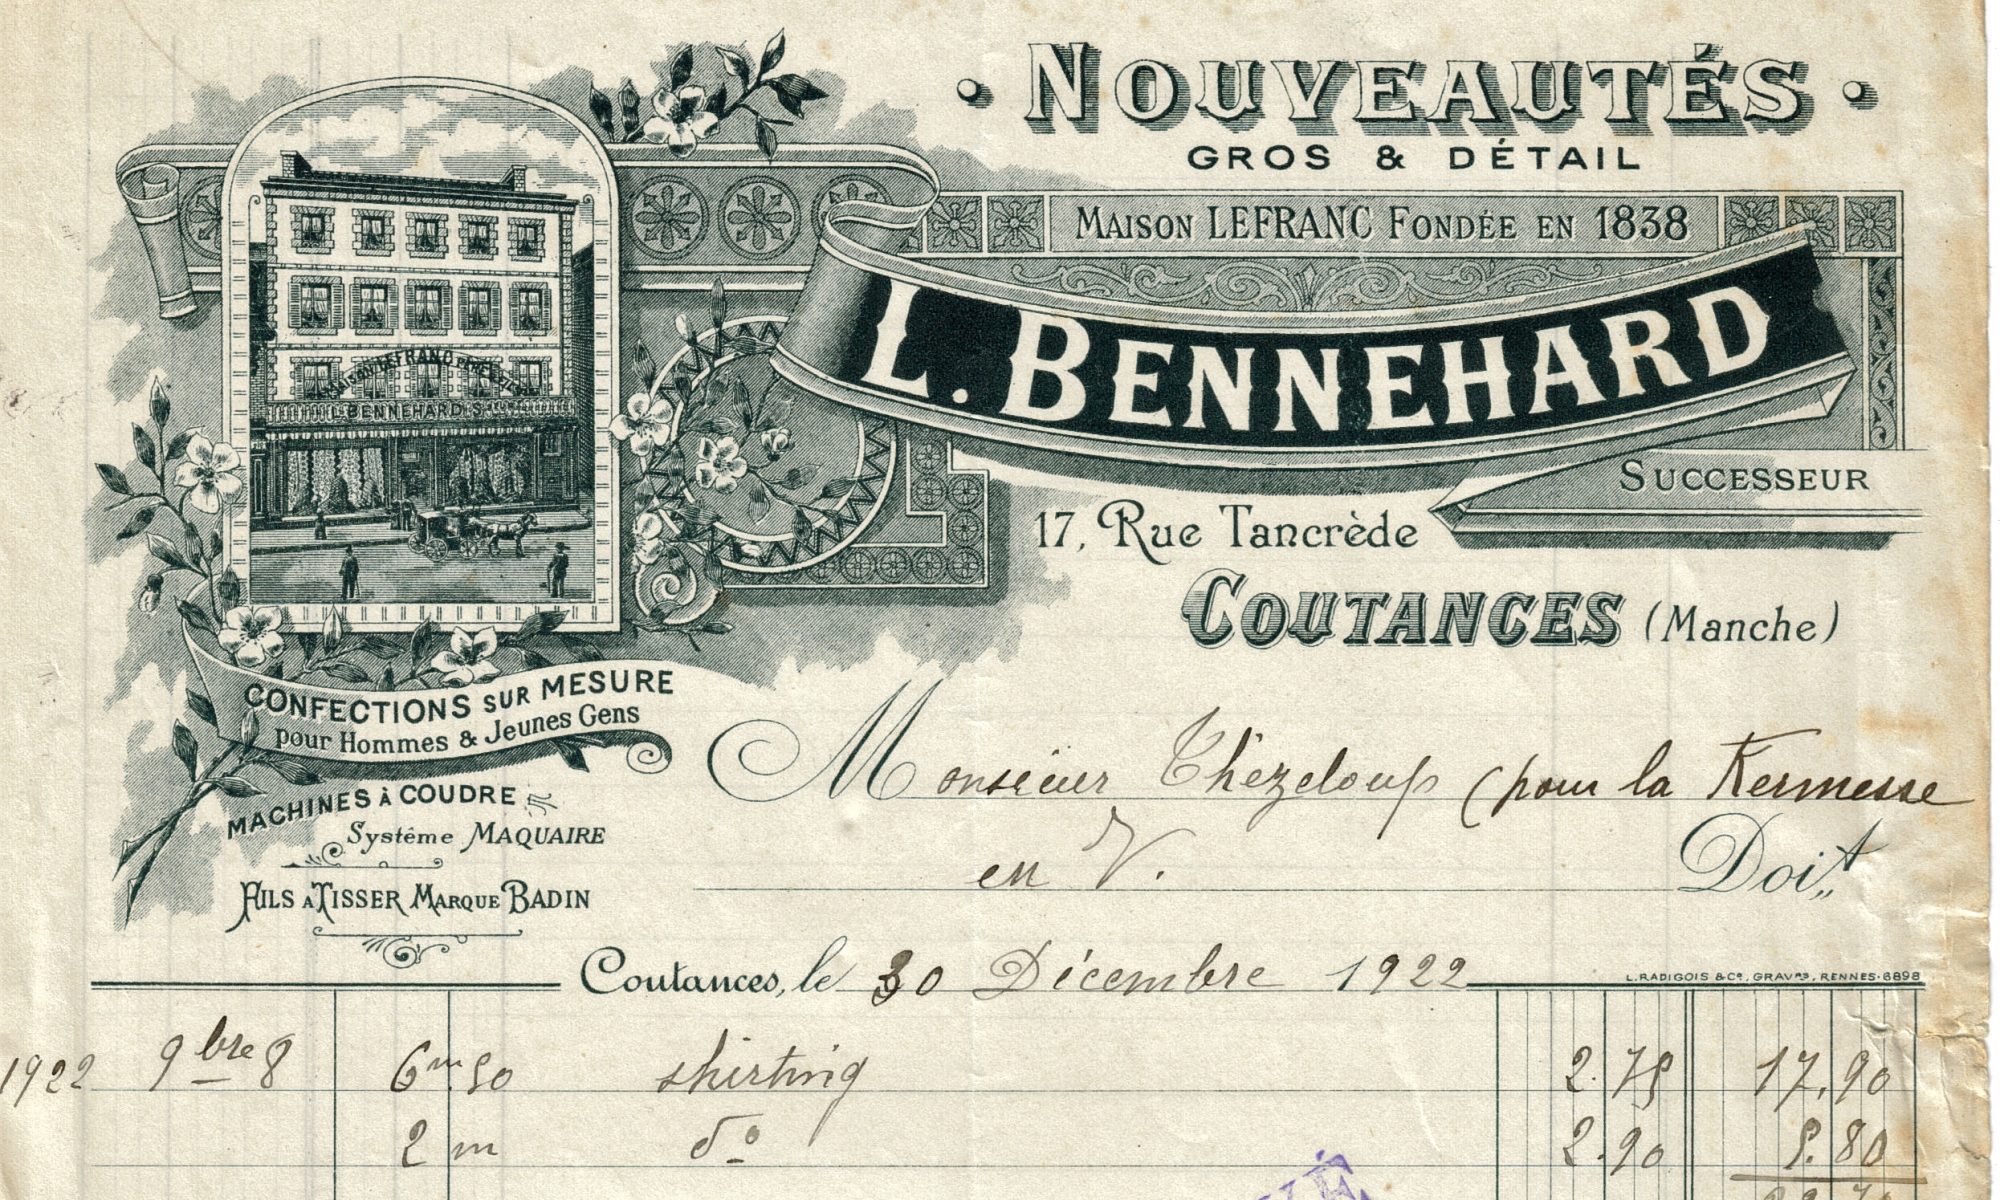 • NOUVEAUTÉS •
GROS & DÉTAIL
MAISON LEFRANC FONDÉE EN 1838
L. BENNEHARD
SUCCESSEUR
17, Rue Tancrède
COUTANCES (Manche)
MAISON LEFRANC PÈRE
L. BENNEHARD S
CONFECTIONS SUR MESURE
pour Hommes & Jeunes Gens
MACHINES À COUDRE
Système MAQUAIRE
FILS À TISSER MARQUE BADIN
Monsieur Thézeloup (pour la Kermesse
en V. Doit
Coutances, le 30 Décembre 1922
L. RADIGOIS & Cie, GRAVRS, RENNES-6898
1922 9bre 8 6m.50 shirting 2.75 17.90
2 m do 2.90 5.80